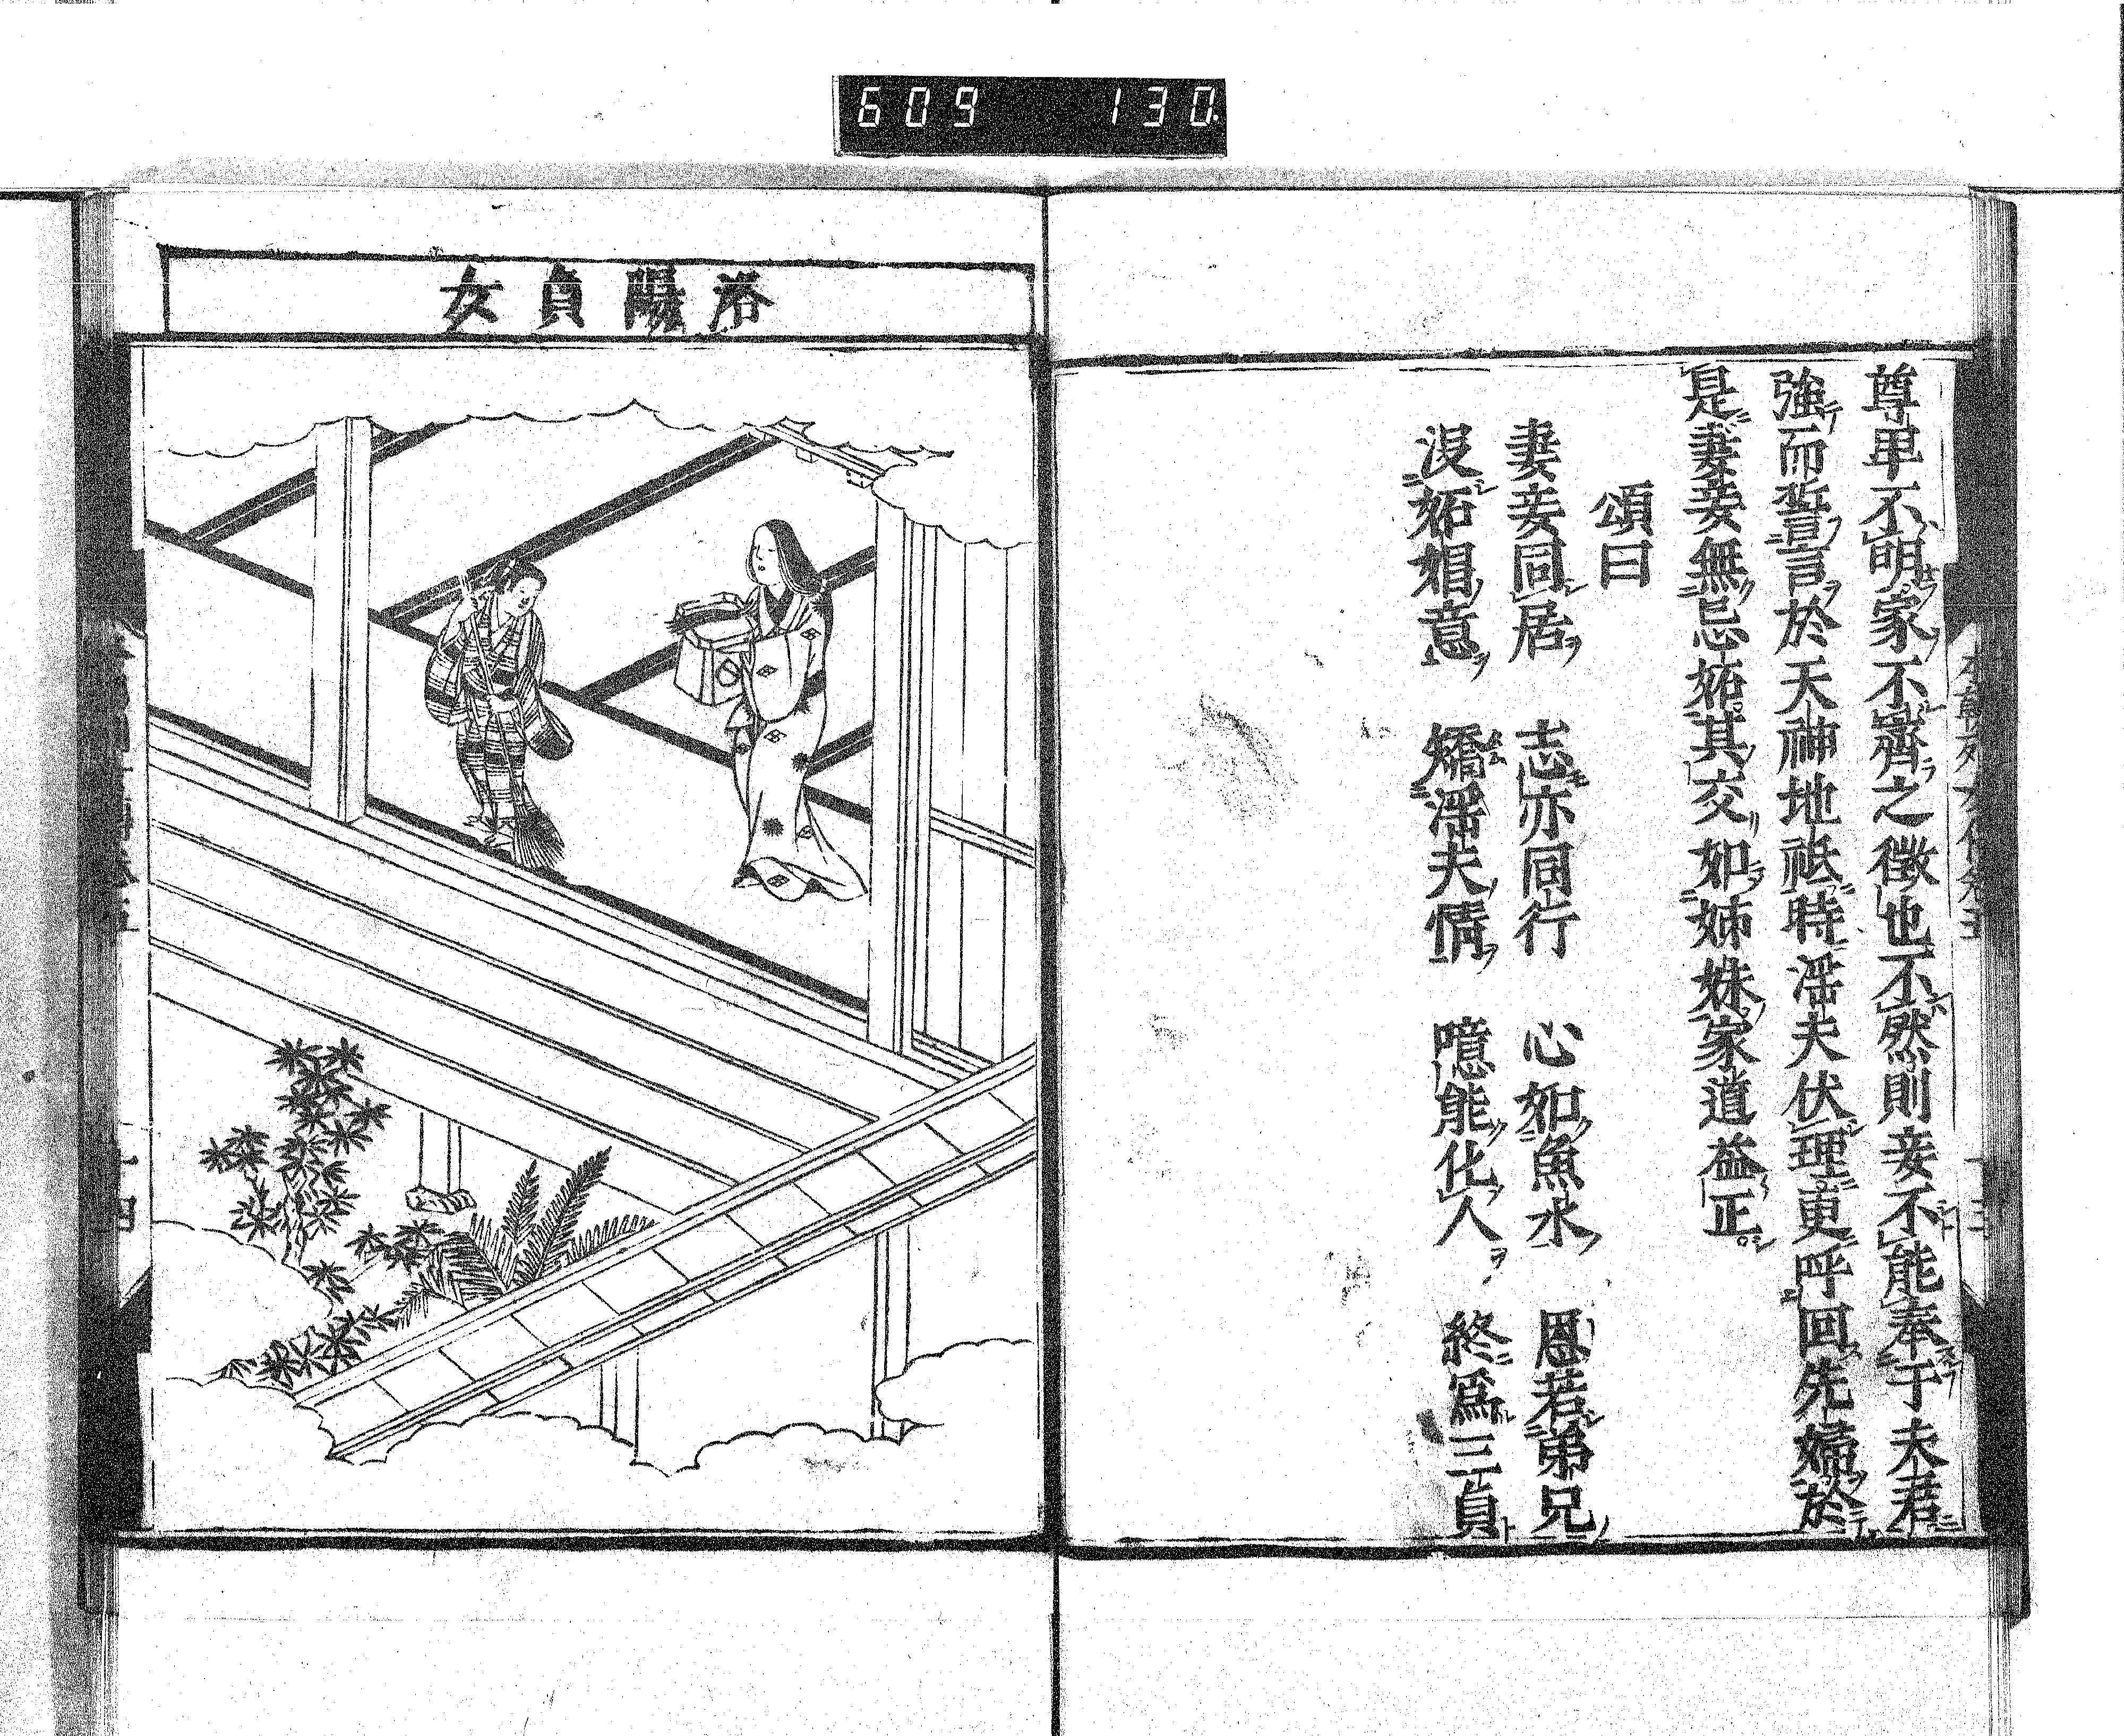 609 130
尊卑不明家不齊之徴也不然則妾不能奉于夫君
強而誓言於天神地祇時淫夫伏理更呼回先婦於
是妻妾無忌妬其交如姉妹家道益正
頌曰
妻妾同居 志亦同行 心如魚水 恩若弟兄
没妬娼意 矯淫夫情 噫能化人 終為三貞
洛陽貞女